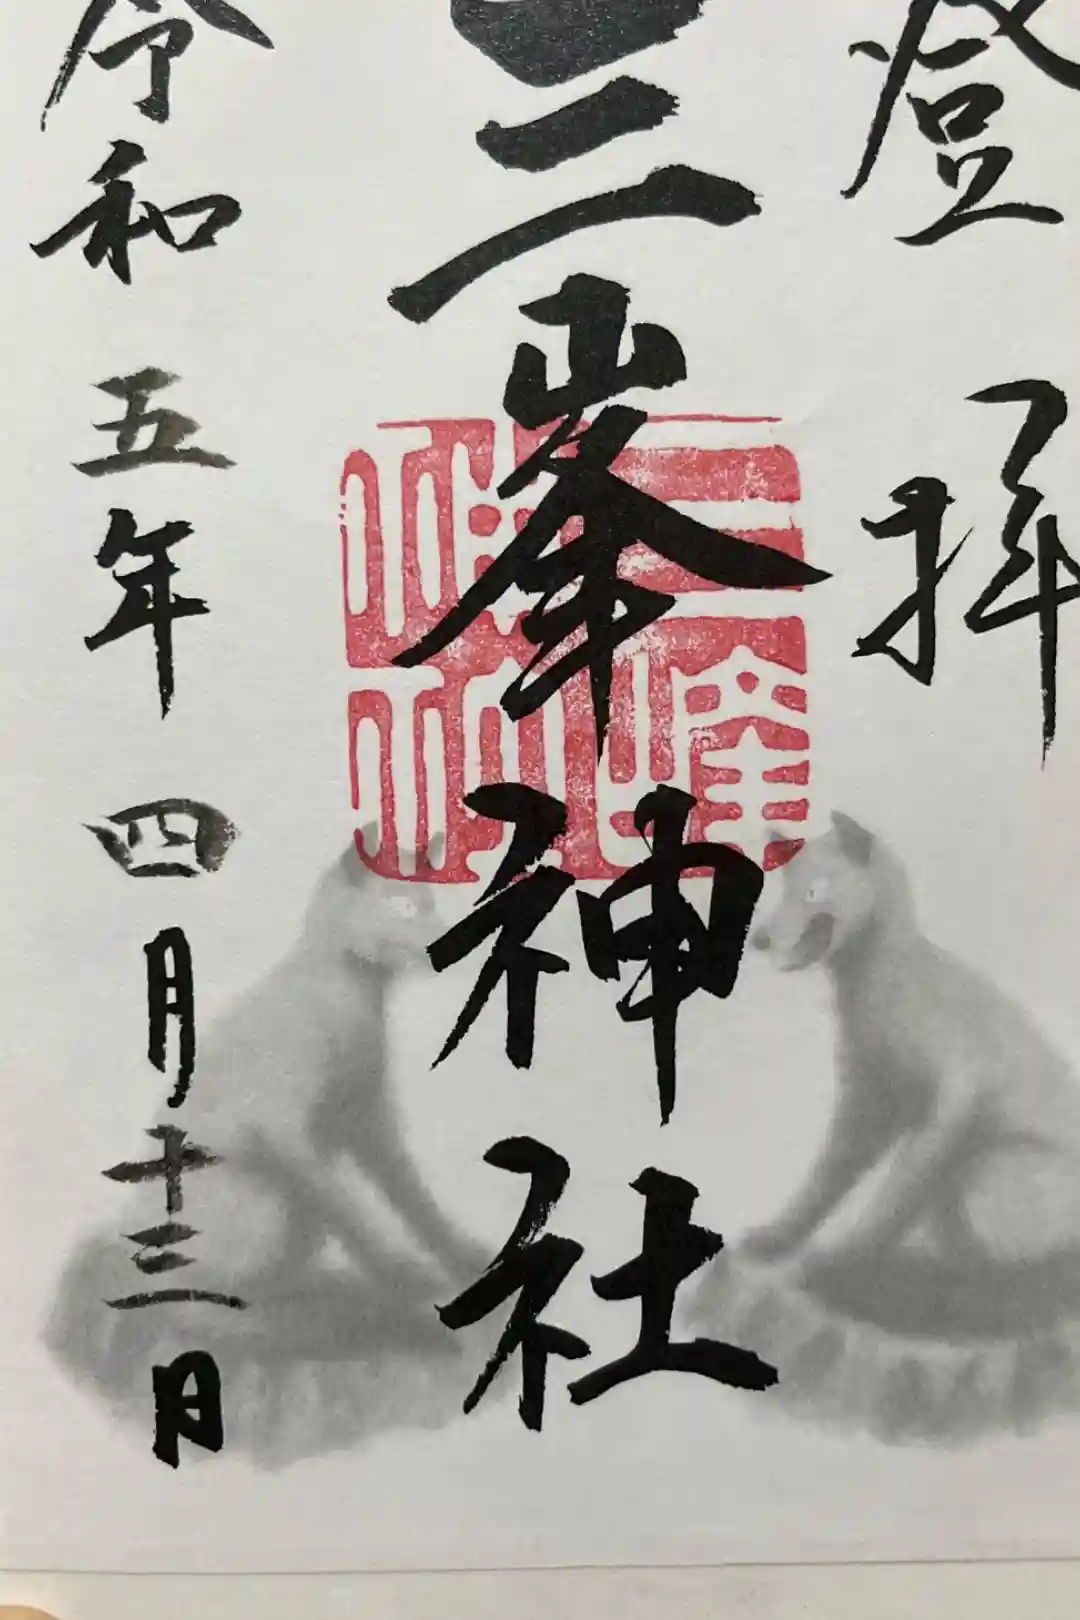 登拝
三峯神社
三峰神社
令和五年四月十三日